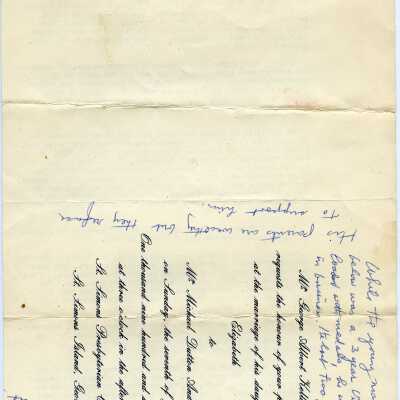 While the young m
below was a 3 year
loaded with medals. He w
in business. He lost two
Mr. George Albert
requests the honour of your p
at the marriage of his daug
Elizabeth
to
Mr. Michael Dutton
on Sunday, the seventh of
One thousand nine hundred and s
at three o'clock in the after
St. Simons Presbyterian C
St. Simons Island, Geor
His parents are wealthy but they refuse
to support him.